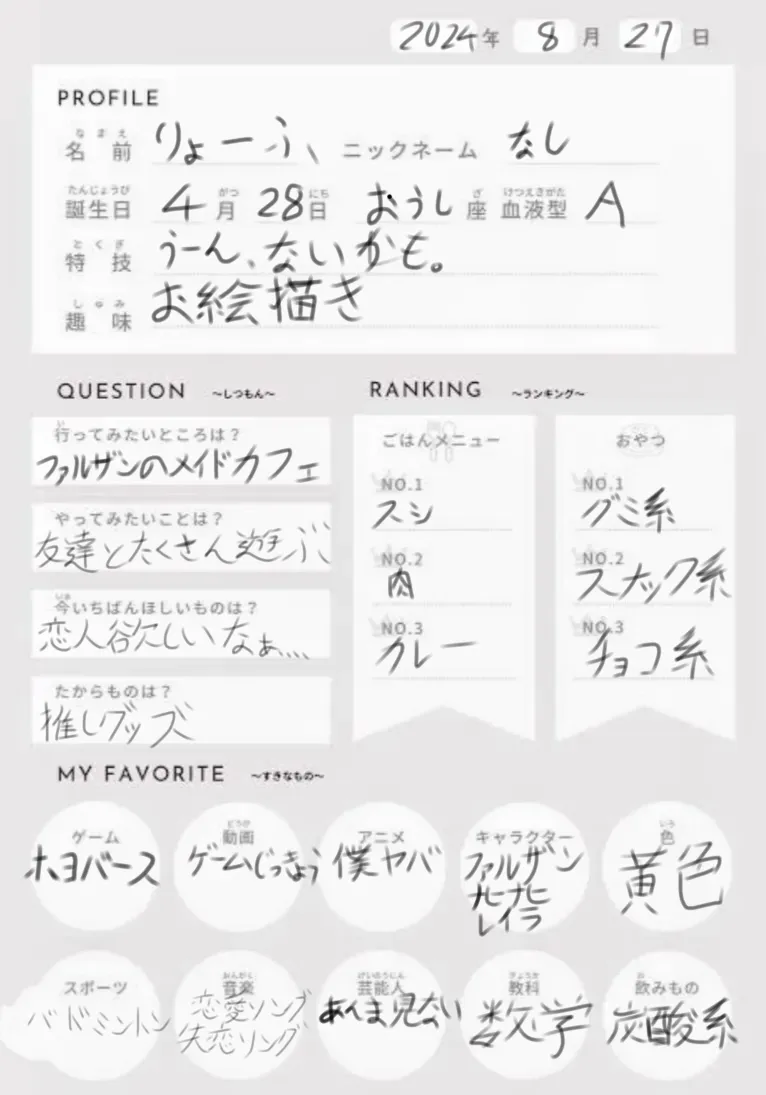 2024年 8月 27日
PROFILE
なまえ
名前 りょーふ、 ニックネーム なし
たんじょうび がつ にち ざ けつえきがた
誕生日 4月 28日 おうし座 血液型 A
とくぎ
特技 うーん、ないかも。
しゅみ
趣味 お絵描き
QUESTION ~しつもん~
い
行ってみたいところは?
ファルザンのメイドカフェ
やってみたいことは?
友達とたくさん遊ぶ
いま
今いちばんほしいものは?
恋人欲しいなぁ...
たからものは?
推しグッズ
RANKING ~ランキング~
ごはんメニュー
NO.1
スシ
NO.2
肉
NO.3
カレー
おやつ
NO.1
グミ系
NO.2
スナック系
NO.3
チョコ系
MY FAVORITE ~すきなもの~
ゲーム
ホヨバース
どうが
動画
ゲームじっきょう
アニメ
僕ヤバ
キャラクター
ファルザン
ナヒーナヒ
レイラ
いろ
色
黄色
スポーツ
バドミントン
おんがく
音楽
恋愛ソング
失恋ソング
げいのうじん
芸能人
あんま見ない
きょうか
教科
数学
の
飲みもの
炭酸系